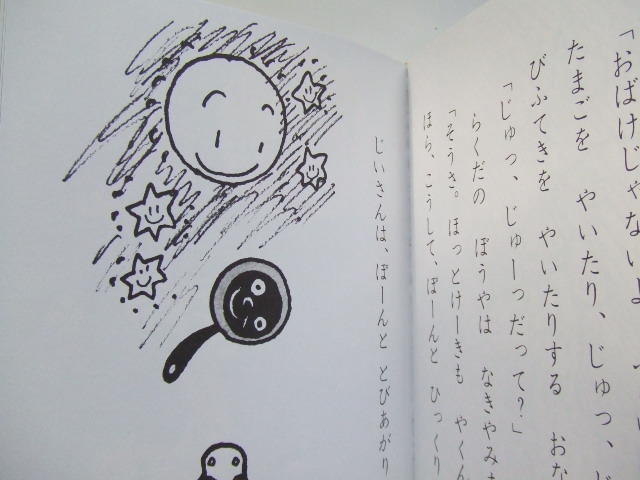 「おばけじゃないよ
たまごを　やいたり、じゅっ、
びふてきを　やいたりする　おな
「じゅっ、じゅーっだって？」
らくだの　ぼうやは　なきやみ
「そうさ。ほっとけーきも　やくん
ほら、こうして、ぽーんと　ひっくり
じいさんは、ぽーんと　とびあがり